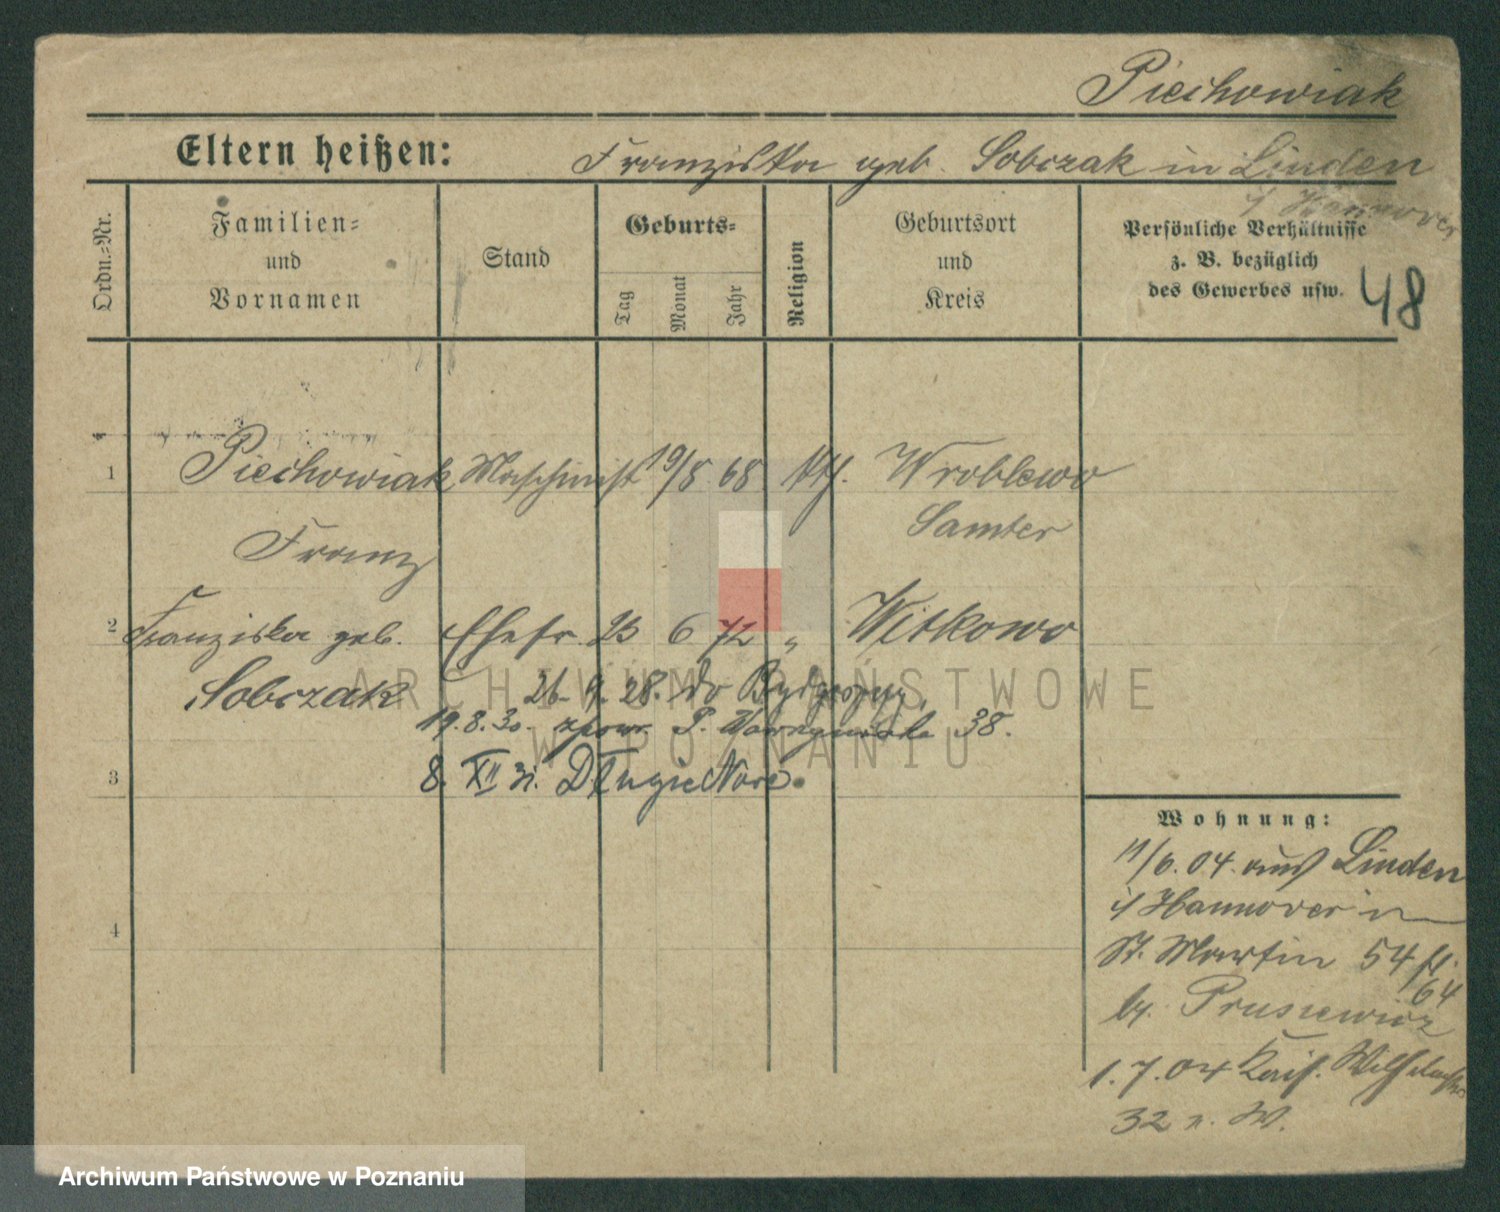 Piechowiak
Eltern heißen: Franziska geb. Sobczak in Linden
i/ Hannover
Ordn.=Nr.
Familien=
und
Vornamen
Stand
Geburts=
Tag
Monat
Jahr
Religion
Geburtsort
und
Kreis
Persönliche Verhältnisse
z. B. bezüglich
des Gewerbes usw.
48
1 Piechowiak Maschinist 19/8 68 kth. Wroblewo
Samter
Franz
2 Franziska geb. Ehefr. 23 6 72 " Witkowo
Sobczak
26. 9. 28. do Bydgoszczy
19.8.30. zpow. P. Wawrzyniaka 38.
3 8. XII 31. Długie Nowe
4
Wohnung:
11/6.04. aus Linden
i/ Hannover in
St. Martin 54
64
bei Prusiewicz
1.7.04 Kais. Wilhelmstr.
32 n. W.
ARCHIWUM PAŃSTWOWE
W POZNANIU
Archiwum Państwowe w Poznaniu